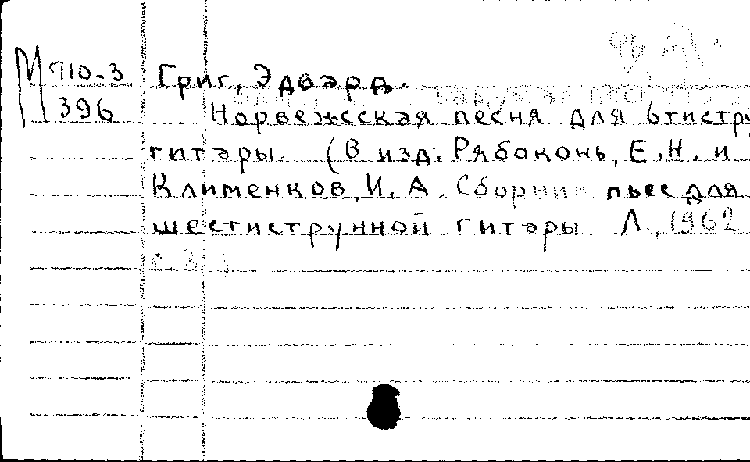 М П10-3 Григ, Эдвард.
396 Норвежская песня для 6тистру
гитары. (В изд. Рябоконь, Е.Н. и
Клименков, И. А. Сборник пьес для
шестиструнной гитары Л., 1962
с. 3.)